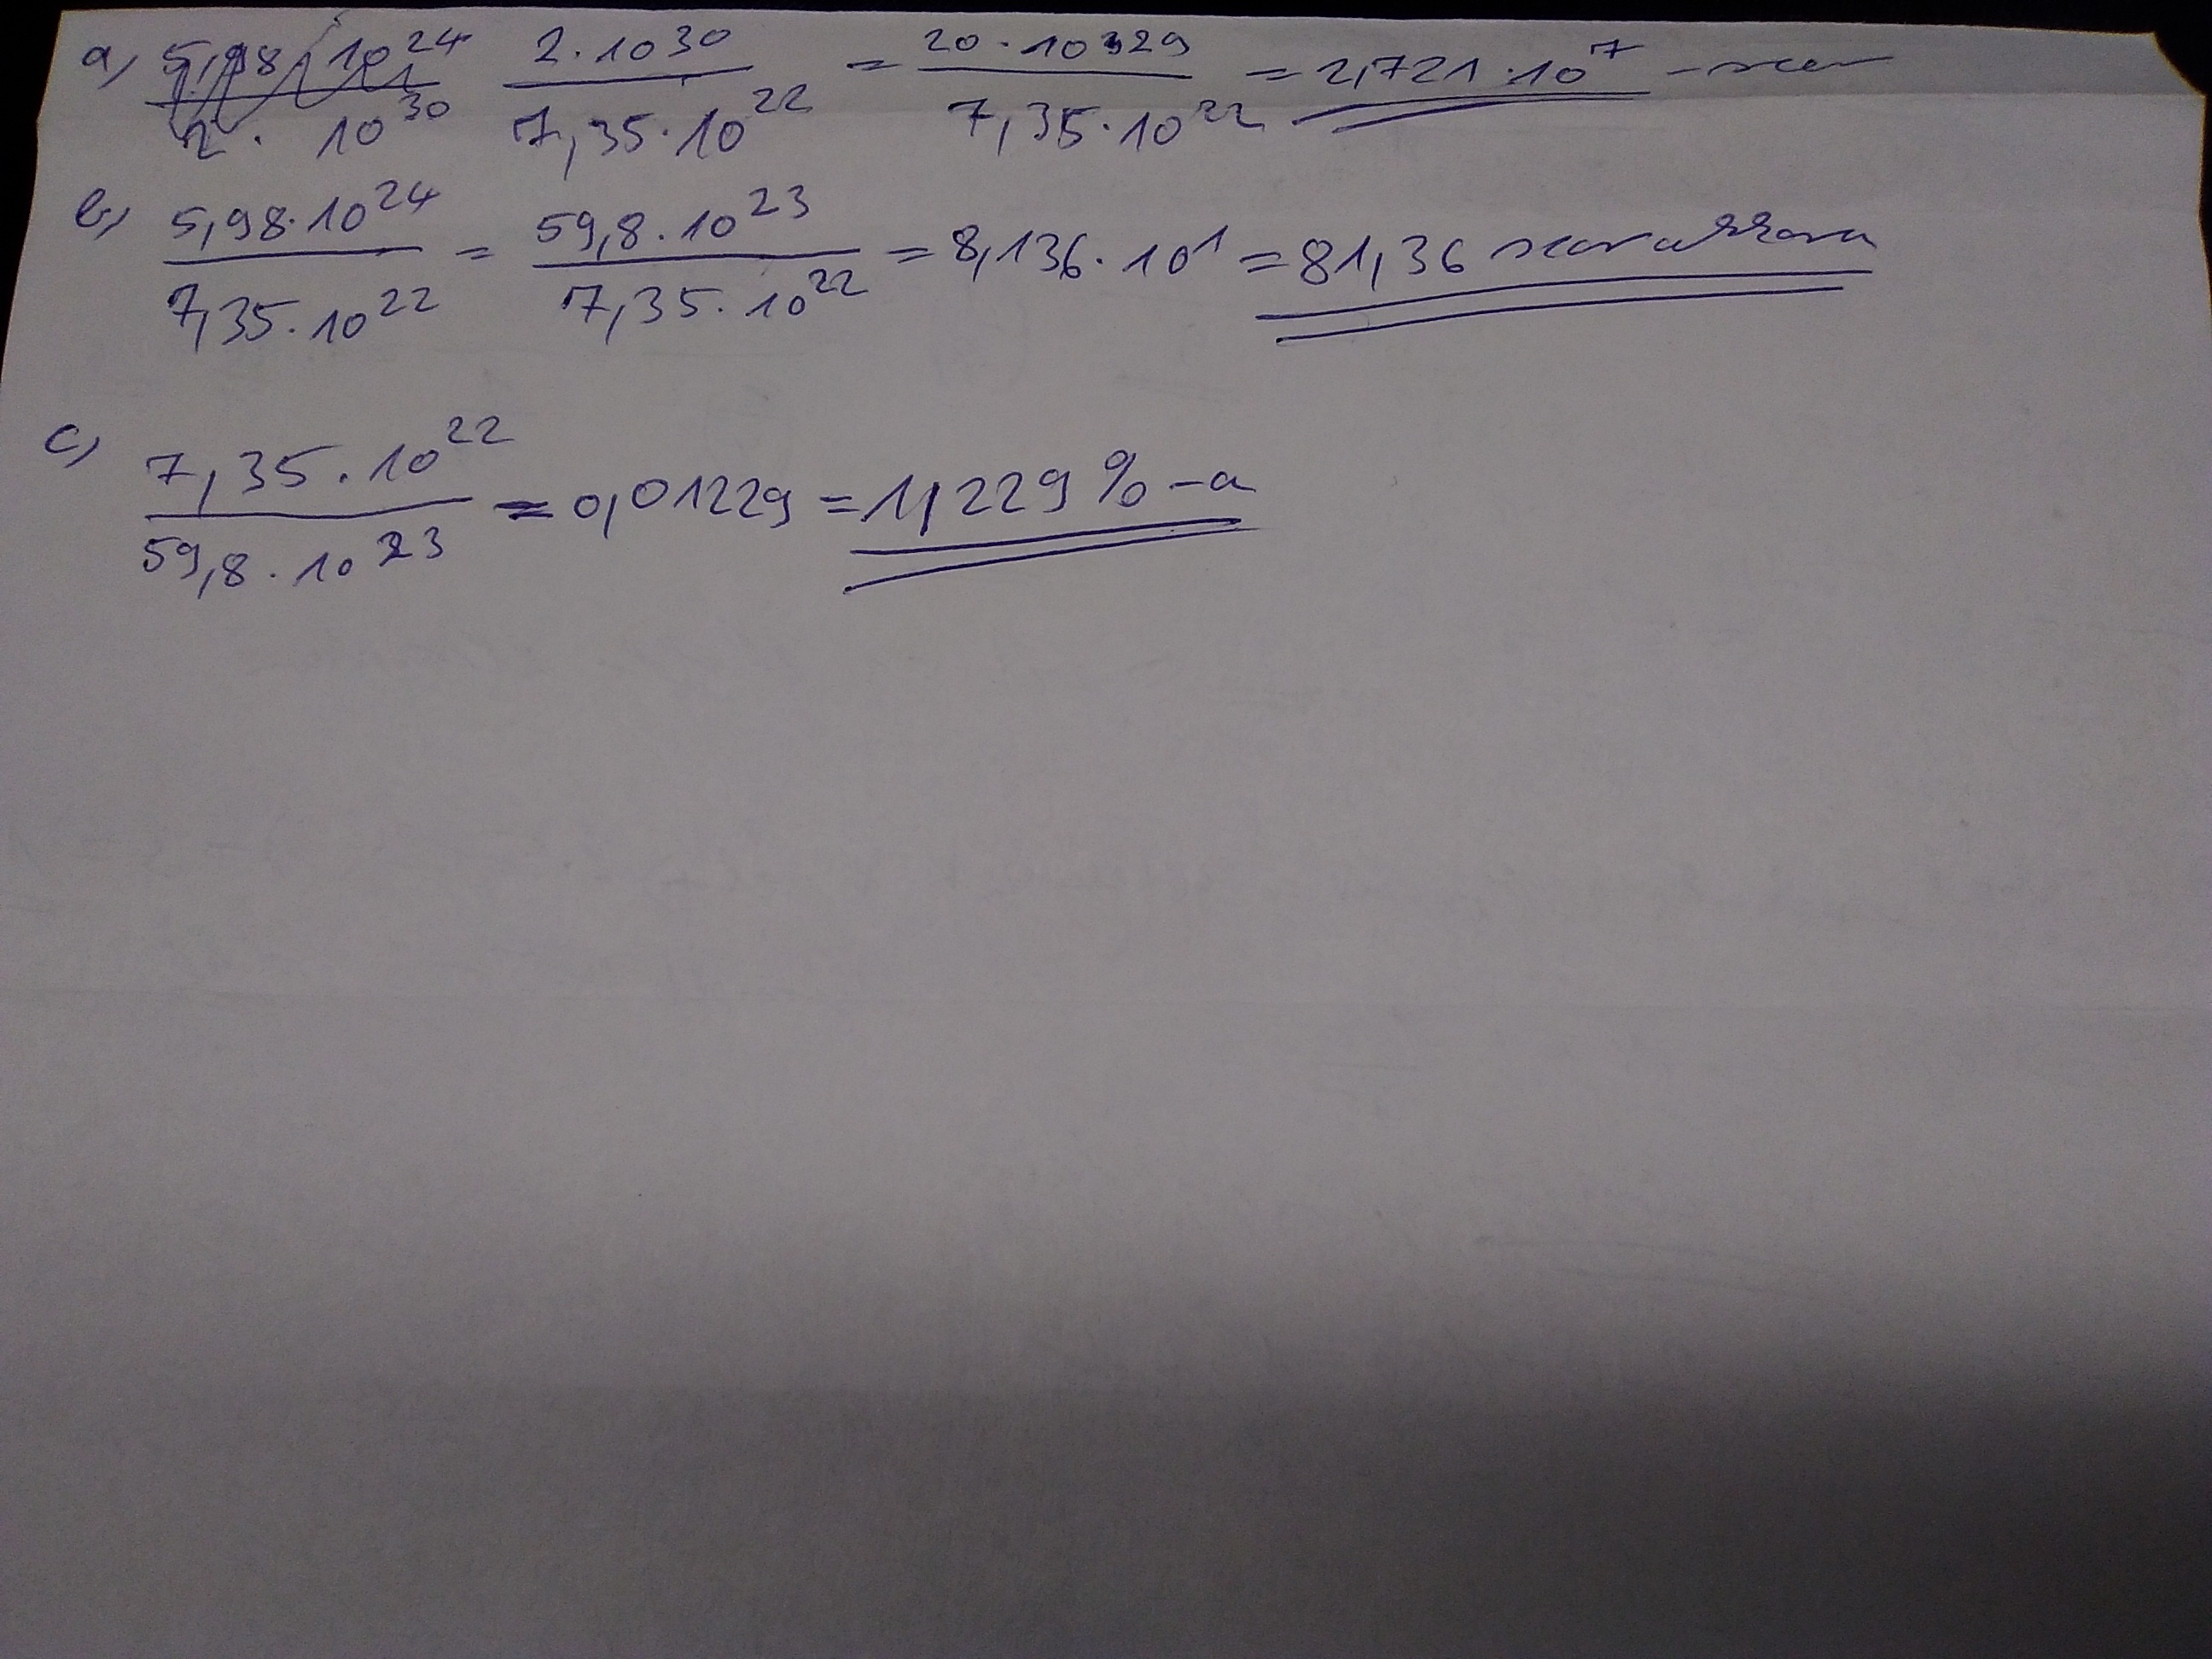 a) 5,98 · 10^24 / 2 · 10^30 2 · 10^30 / 7,35 · 10^22 = 20 · 10^29 / 7,35 · 10^22 = 2,721 · 10^7 -szer
b) 5,98 · 10^24 / 7,35 · 10^22 = 59,8 · 10^23 / 7,35 · 10^22 = 8,136 · 10^1 = 81,36 szor akkora
c) 7,35 · 10^22 / 59,8 · 10^23 = 0,01229 = 1,229 % -a